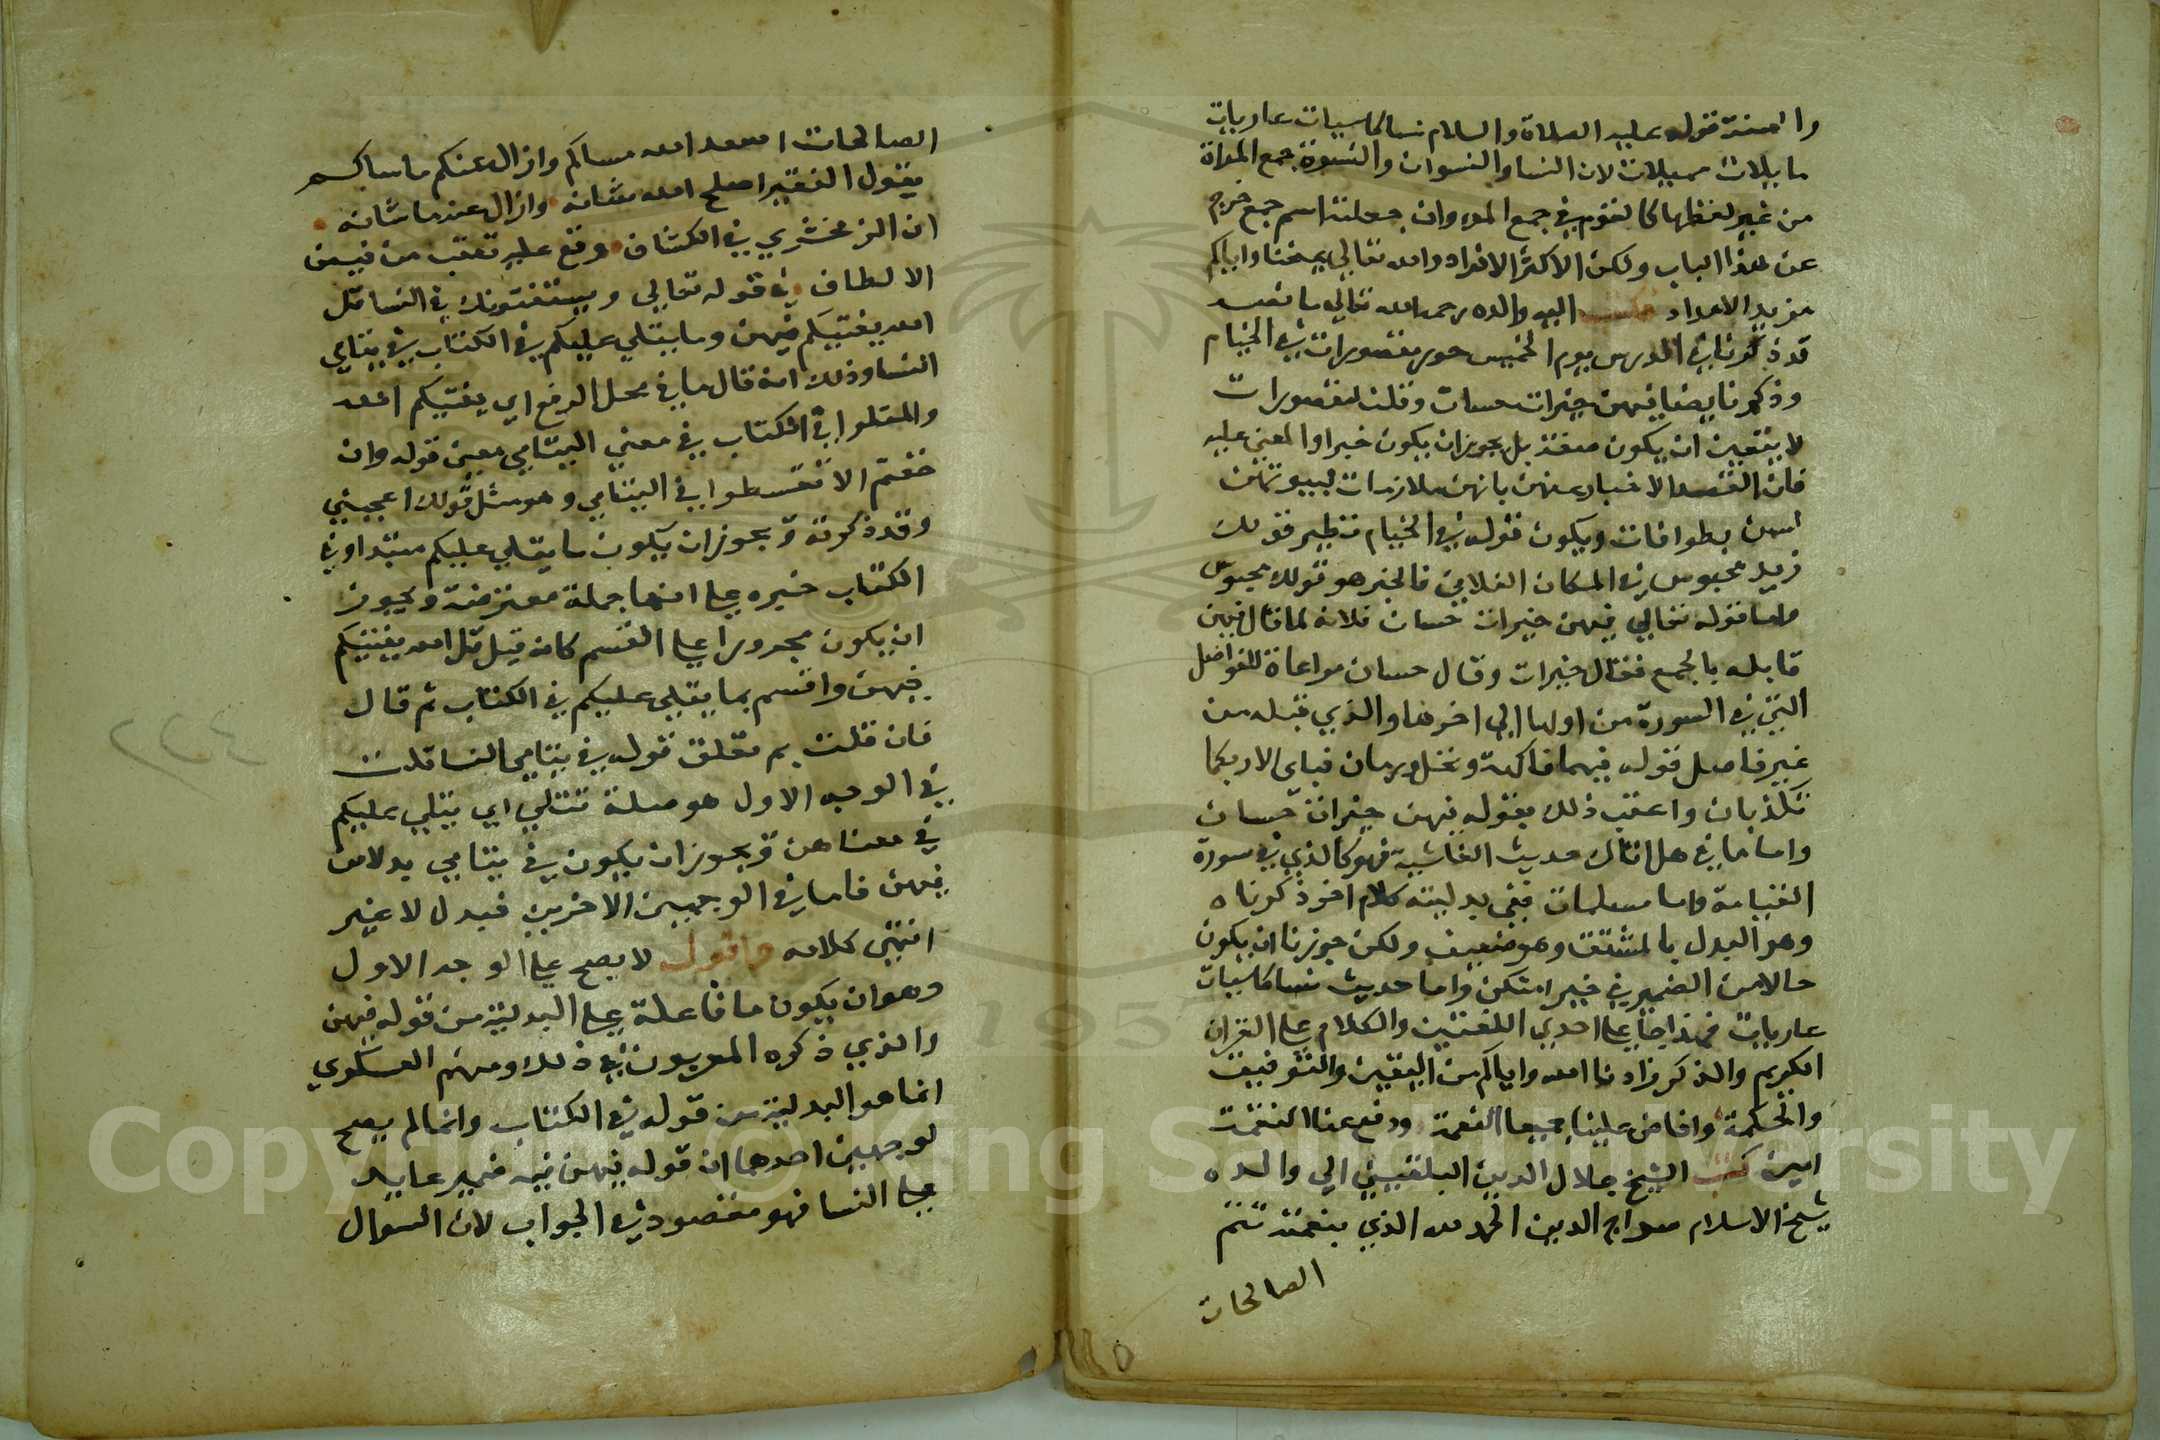 والسنة قوله عليه الصلاة والسلام نسا كاسيات عاريات
مايلات مميلات لان النسا والنسوان والنسوة جمع المراة
من غير لفظها كالقوم في جمع المرء وان جعلته اسم جمع خرج
عن هذا الباب ولكن الاكثر الافراد والله تعالى يمنحنا واياكم
مزيد الامداد فكتب اليه والده رحمه الله تعالى ما نصه
قد ذكرنا في الدرس يوم الخميس حور مقصورات في الخيام
وذكرنا ايضا فيهن خيرات حسان وقلت مقصورات
لا يتعين ان يكون صفة بل يجوز ان يكون خبرا والمعنى عليه
فان القصد الاخبار عنهن بانهن ملازمات لبيوتهن
لسن بطوافات ويكون قوله في الخيام نظير قولك
زيد محبوس في المكان الفلاني فالخبر هو قولك محبوس
واما قوله تعالى فيهن خيرات حسان فلانه لما قال فيهن
قابله بالجمع فقال خيرات وقال حسان مراعاة للفواصل
التي في السورة من اولها الى اخرها والذي قبله من
غير فاصل قوله فيهما فاكهة ونخل ورمان فباي الا ربكما
تكذبان واعقب ذلك بقوله فيهن خيرات حسان
واما ما في هل اتاك حديث الغاشية فهو كالذي في سورة
القيامة واما مسلمات ففي بدليته كلام اخر ذكرناه
وهو البدل بالمشتق وهو ضعيف ولكن جوزنا ان يكون
حالا من الضمير في خيرا منكن واما حديث نسا كاسيات
عاريات فهذا جا على احدى اللغتين والكلام على القران
الكريم والذكر زادنا الله واياكم من اليقين والتوفيق
والحكمة وافاض علينا جميعا النعمة ودفع عنا النقمة
امين كتب الشيخ جلال الدين البلقيني الى والده
شيخ الاسلام سراج الدين الحمد لله الذي بنعمته تتم
الصالحات
الصالحات اسعد الله مساكم وازال عنكم ما ساكم
يقول الفقير اصلح الله شانه وازال عنه ما شانه
ان الزمخشري في الكشاف وقع عليه تعقب من فيض
الالطاف في قوله تعالى ويستفتونك في النسا قل
الله يفتيكم فيهن وما يتلى عليكم في الكتاب في يتامى
النسا وذلك انه قال ما في محل الرفع اي يفتيكم الله
والمتلوا في الكتاب في معنى اليتامى يعني قوله وان
خفتم الا تقسطوا في اليتامى وهو مثل قولك اعجبني
وقد ذكرته ويجوز ان يكون ما يتلى عليكم مبتدا وفي
الكتاب خبره على انها جملة معترضة ويجوز
ان يكون مجرورا على القسم كانه قيل قل الله يفتيكم
فيهن واقسم بما يتلى عليكم في الكتاب ثم قال
فان قلت بم تعلق قوله في يتامى النسا قلت
في الوجه الاول هو صلة تتلى اي يتلى عليكم
في معناهن ويجوز ان يكون في يتامى بدلا من
فيهن فاما في الوجهين الاخرين فبدل لا غير
انتهى كلامه واقول لا يصح على الوجه الاول
وهو ان يكون ما فاعلة على البدلية من قوله فيهن
والذي ذكره المعربون في ذلك ومنهم العسكري
انما هو البدلية من قوله في الكتاب وانما لم يصح
لوجهين احدهما ان قوله فيهن فيه ضمير عايد
على النسا فهو مقصود في الجواب لان السوال
Copyright © King Saud University
195